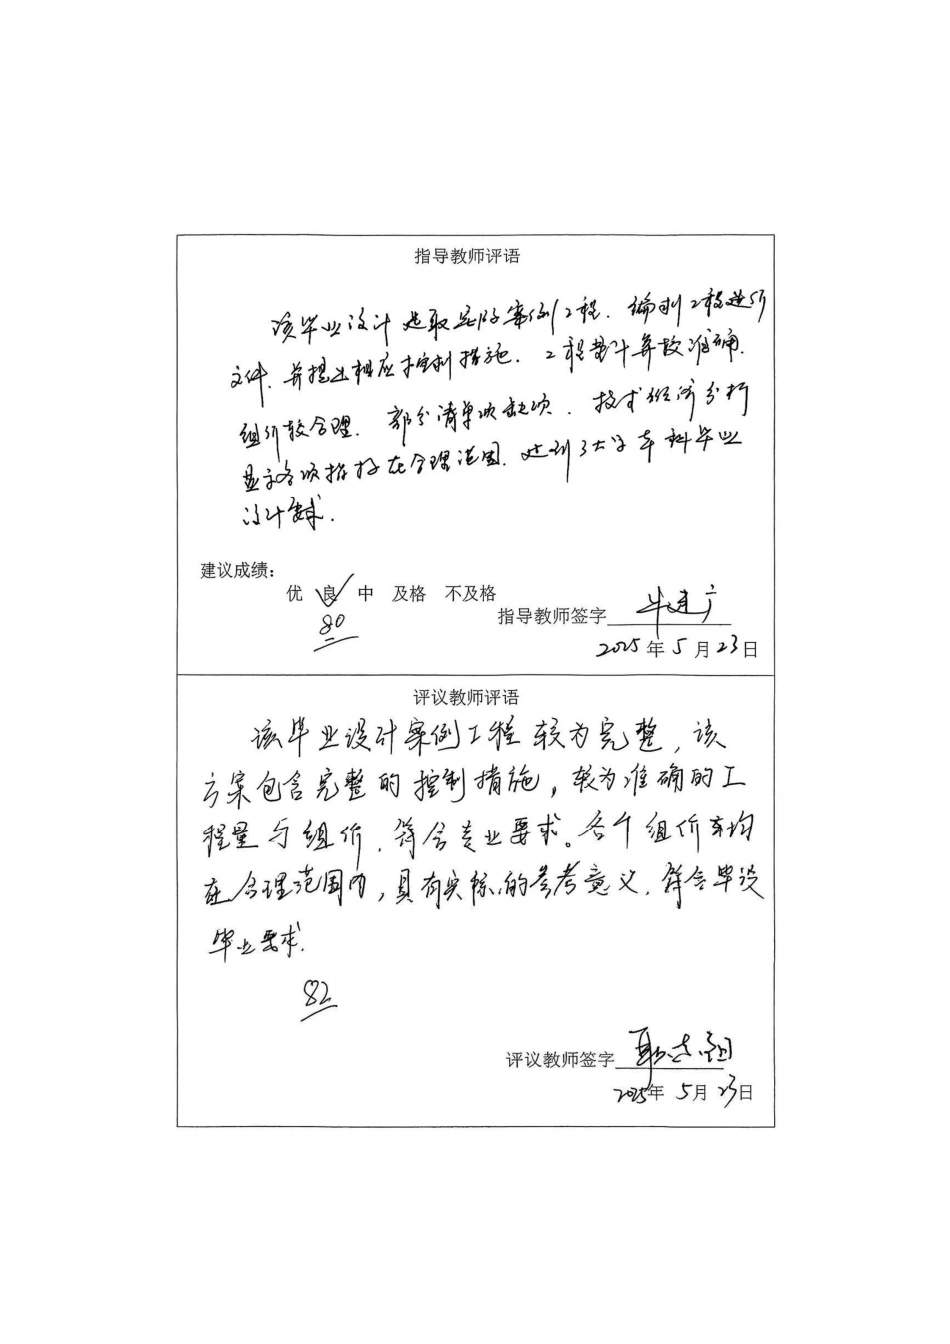 指导教师评语
该毕业设计选取实际案例工程. 编制工程造价
文件. 并提出相应控制措施. 工程量计算较准确.
组价较合理. 部分清单项缺项. 技术经济分析
显示各项指标在合理范围. 达到了大学本科毕业
设计要求.
建议成绩:
优 良 中 及格 不及格
80
指导教师签字
2025年5月23日
评议教师评语
该毕业设计案例工程较为完整, 该
方案包含完整的控制措施, 较为准确的工
程量与组价, 符合专业要求。各个组价
均
在合理范围内, 具有实际的参考意义, 符合毕设
毕业要求.
82
评议教师签字
2025年5月23日